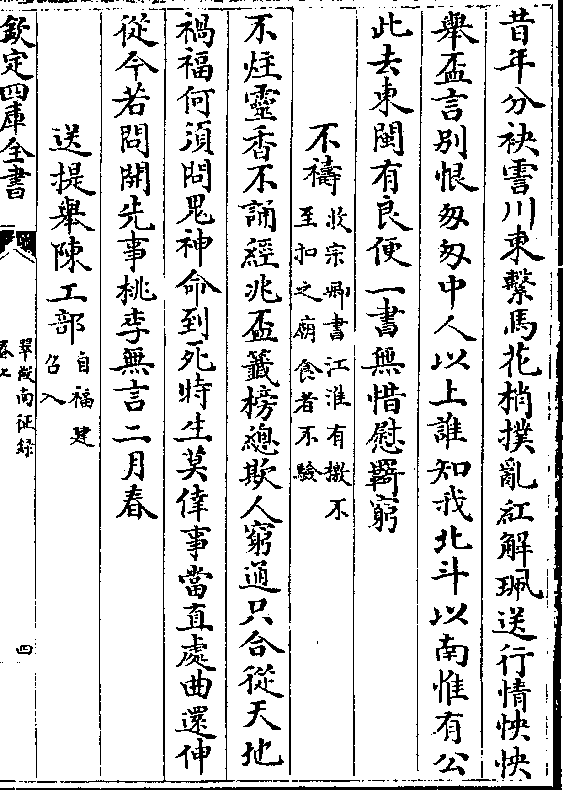 昔年分袂霅川東繫馬花梢撲亂紅解珮送行情怏怏
舉盃言別恨匆匆中人以上誰知我北斗以南惟有公
此去東閩有良便一書無惜慰羇窮
不禱
收宗卿書江淮有檄不
至扣之廟食者不驗
不炷靈香不誦經兆盃籤榜總欺人窮通只合從天地
禍福何須問鬼神命到死時生莫倖事當直處曲還伸
從今若問開先事桃李無言二月春
送提舉陳工部
自福建
召入
欽定四庫全書
翠微南征錄
卷七
四